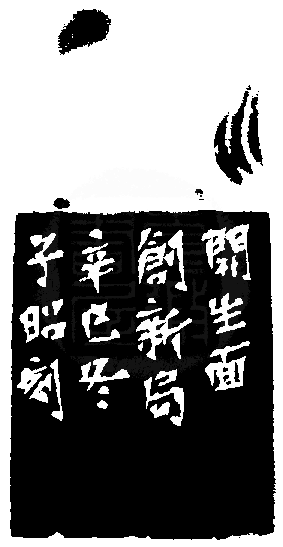 開生面
創新局
辛巳冬
子昭刻